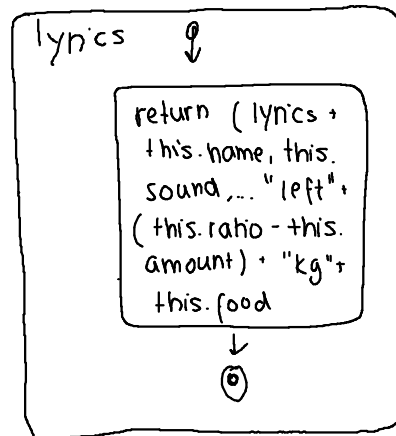 lyrics
return (lyrics +
this.name, this.
sound,... "left"+
(this.ratio - this.
amount) + "kg"+
this.food